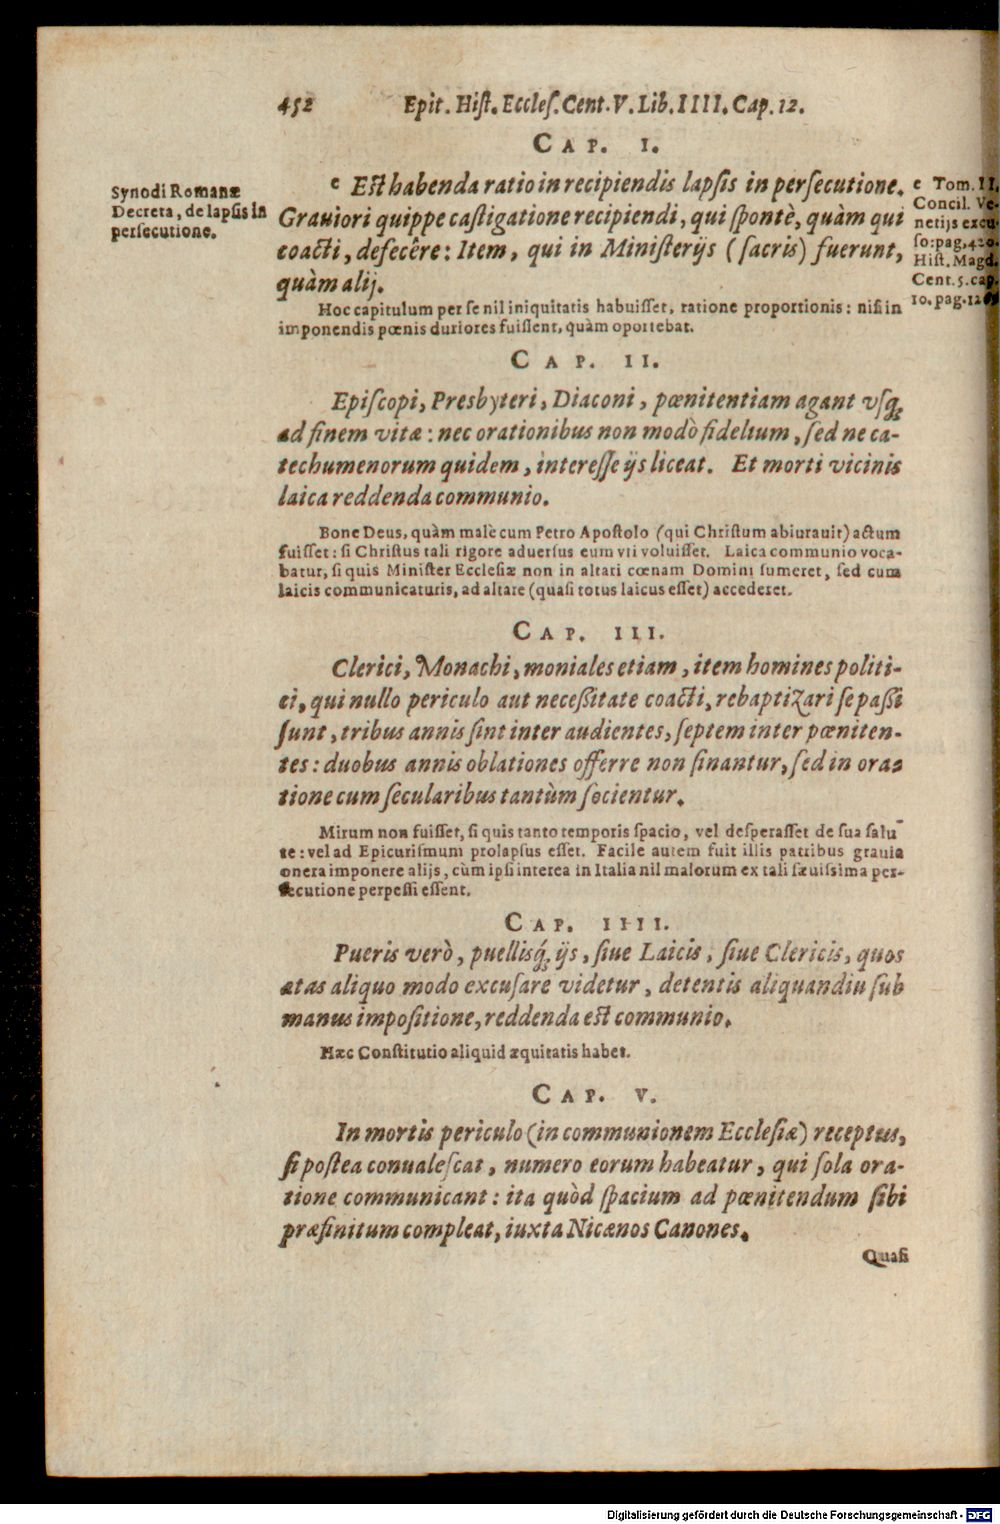 452 Epit. Hiſt. Eccleſ. Cent. V. Lib. IIII. Cap. 12.
CAP. I.
Synodi Romanæ
Decreta, de lapſis in
perſecutione.
e Eſt habenda ratio in recipiendis lapſis in perſecutione.
Grauiori quippe caſtigatione recipiendi, qui ſpontè, quàm qui
coacti, defecêre: Item, qui in Miniſterijs (ſacris) fuerunt,
quàm alij.
e Tom. II.
Concil. Ve-
netijs excu-
ſo: pag. 420.
Hiſt. Magd.
Cent. 5. cap.
10. pag.
Hoc capitulum per ſe nil iniquitatis habuiſſet, ratione proportionis: niſi in
imponendis pœnis duriores fuiſſent, quàm oportebat.
CAP. II.
Epiſcopi, Presbyteri, Diaconi, pœnitentiam agant vſq́;
ad finem vitæ: nec orationibus non modò fidelium, ſed ne ca-
techumenorum quidem, intereſſe ijs liceat. Et morti vicinis
laica reddenda communio.
Bone Deus, quàm malè cum Petro Apoſtolo (qui Chriſtum abiurauit) actum
fuiſſet: ſi Chriſtus tali rigore aduerſus eum vti voluiſſet. Laica communio voca-
batur, ſi quis Miniſter Eccleſiæ non in altari cœnam Domini ſumeret, ſed cum
laicis communicaturis, ad altare (quaſi totus laicus eſſet) accederet.
CAP. III.
Clerici, Monachi, moniales etiam, item homines politi-
ci, qui nullo periculo aut neceßitate coacti, rebaptizari ſe paßi
ſunt, tribus annis ſint inter audientes, ſeptem inter pœniten-
tes: duobus annis oblationes offerre non ſinantur, ſed in ora-
tione cum ſecularibus tantùm ſocientur.
Mirum non fuiſſet, ſi quis tanto temporis ſpacio, vel deſperaſſet de ſua ſalu-
te: vel ad Epicuriſmum prolapſus eſſet. Facile autem fuit illis patribus grauia
onera imponere alijs, cùm ipſi interea in Italia nil malorum ex tali ſæuiſſima per-
ſecutione perpeſſi eſſent.
CAP. IIII.
Pueris verò, puellisq́; ijs, ſiue Laicis, ſiue Clericis, quos
ætas aliquo modo excuſare videtur, detentis aliquandiu ſub
manus impoſitione, reddenda eſt communio.
Hæc Conſtitutio aliquid æquitatis habet.
CAP. V.
In mortis periculo (in communionem Eccleſiæ) receptus,
ſi poſtea conualeſcat, numero eorum habeatur, qui ſola ora-
tione communicant: ita quòd ſpacium ad pœnitendum ſibi
præfinitum compleat, iuxta Nicænos Canones.
Quaſi
Digitalisierung gefördert durch die Deutsche Forschungsgemeinschaft - DFG